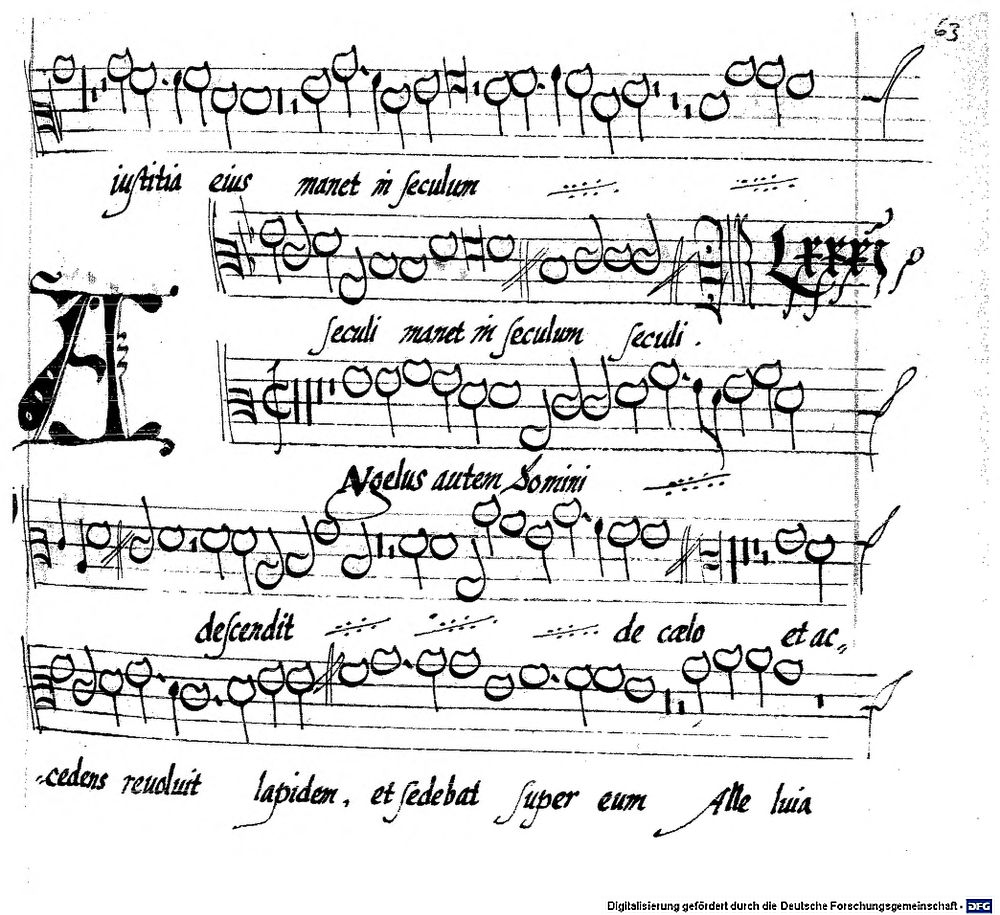 63
iustitia eius manet in seculum
Lxxxi
seculi manet in seculum seculi.
A
Ngelus autem Domini
descendit de cælo et ac„
„cedens reuoluit lapidem, et sedebat super eum Alle luia
Digitalisierung gefördert durch die Deutsche Forschungsgemeinschaft - DFG